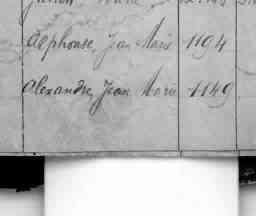 Alphonse, Jean Marie 1194
Alexandre, Jean Marie 1149